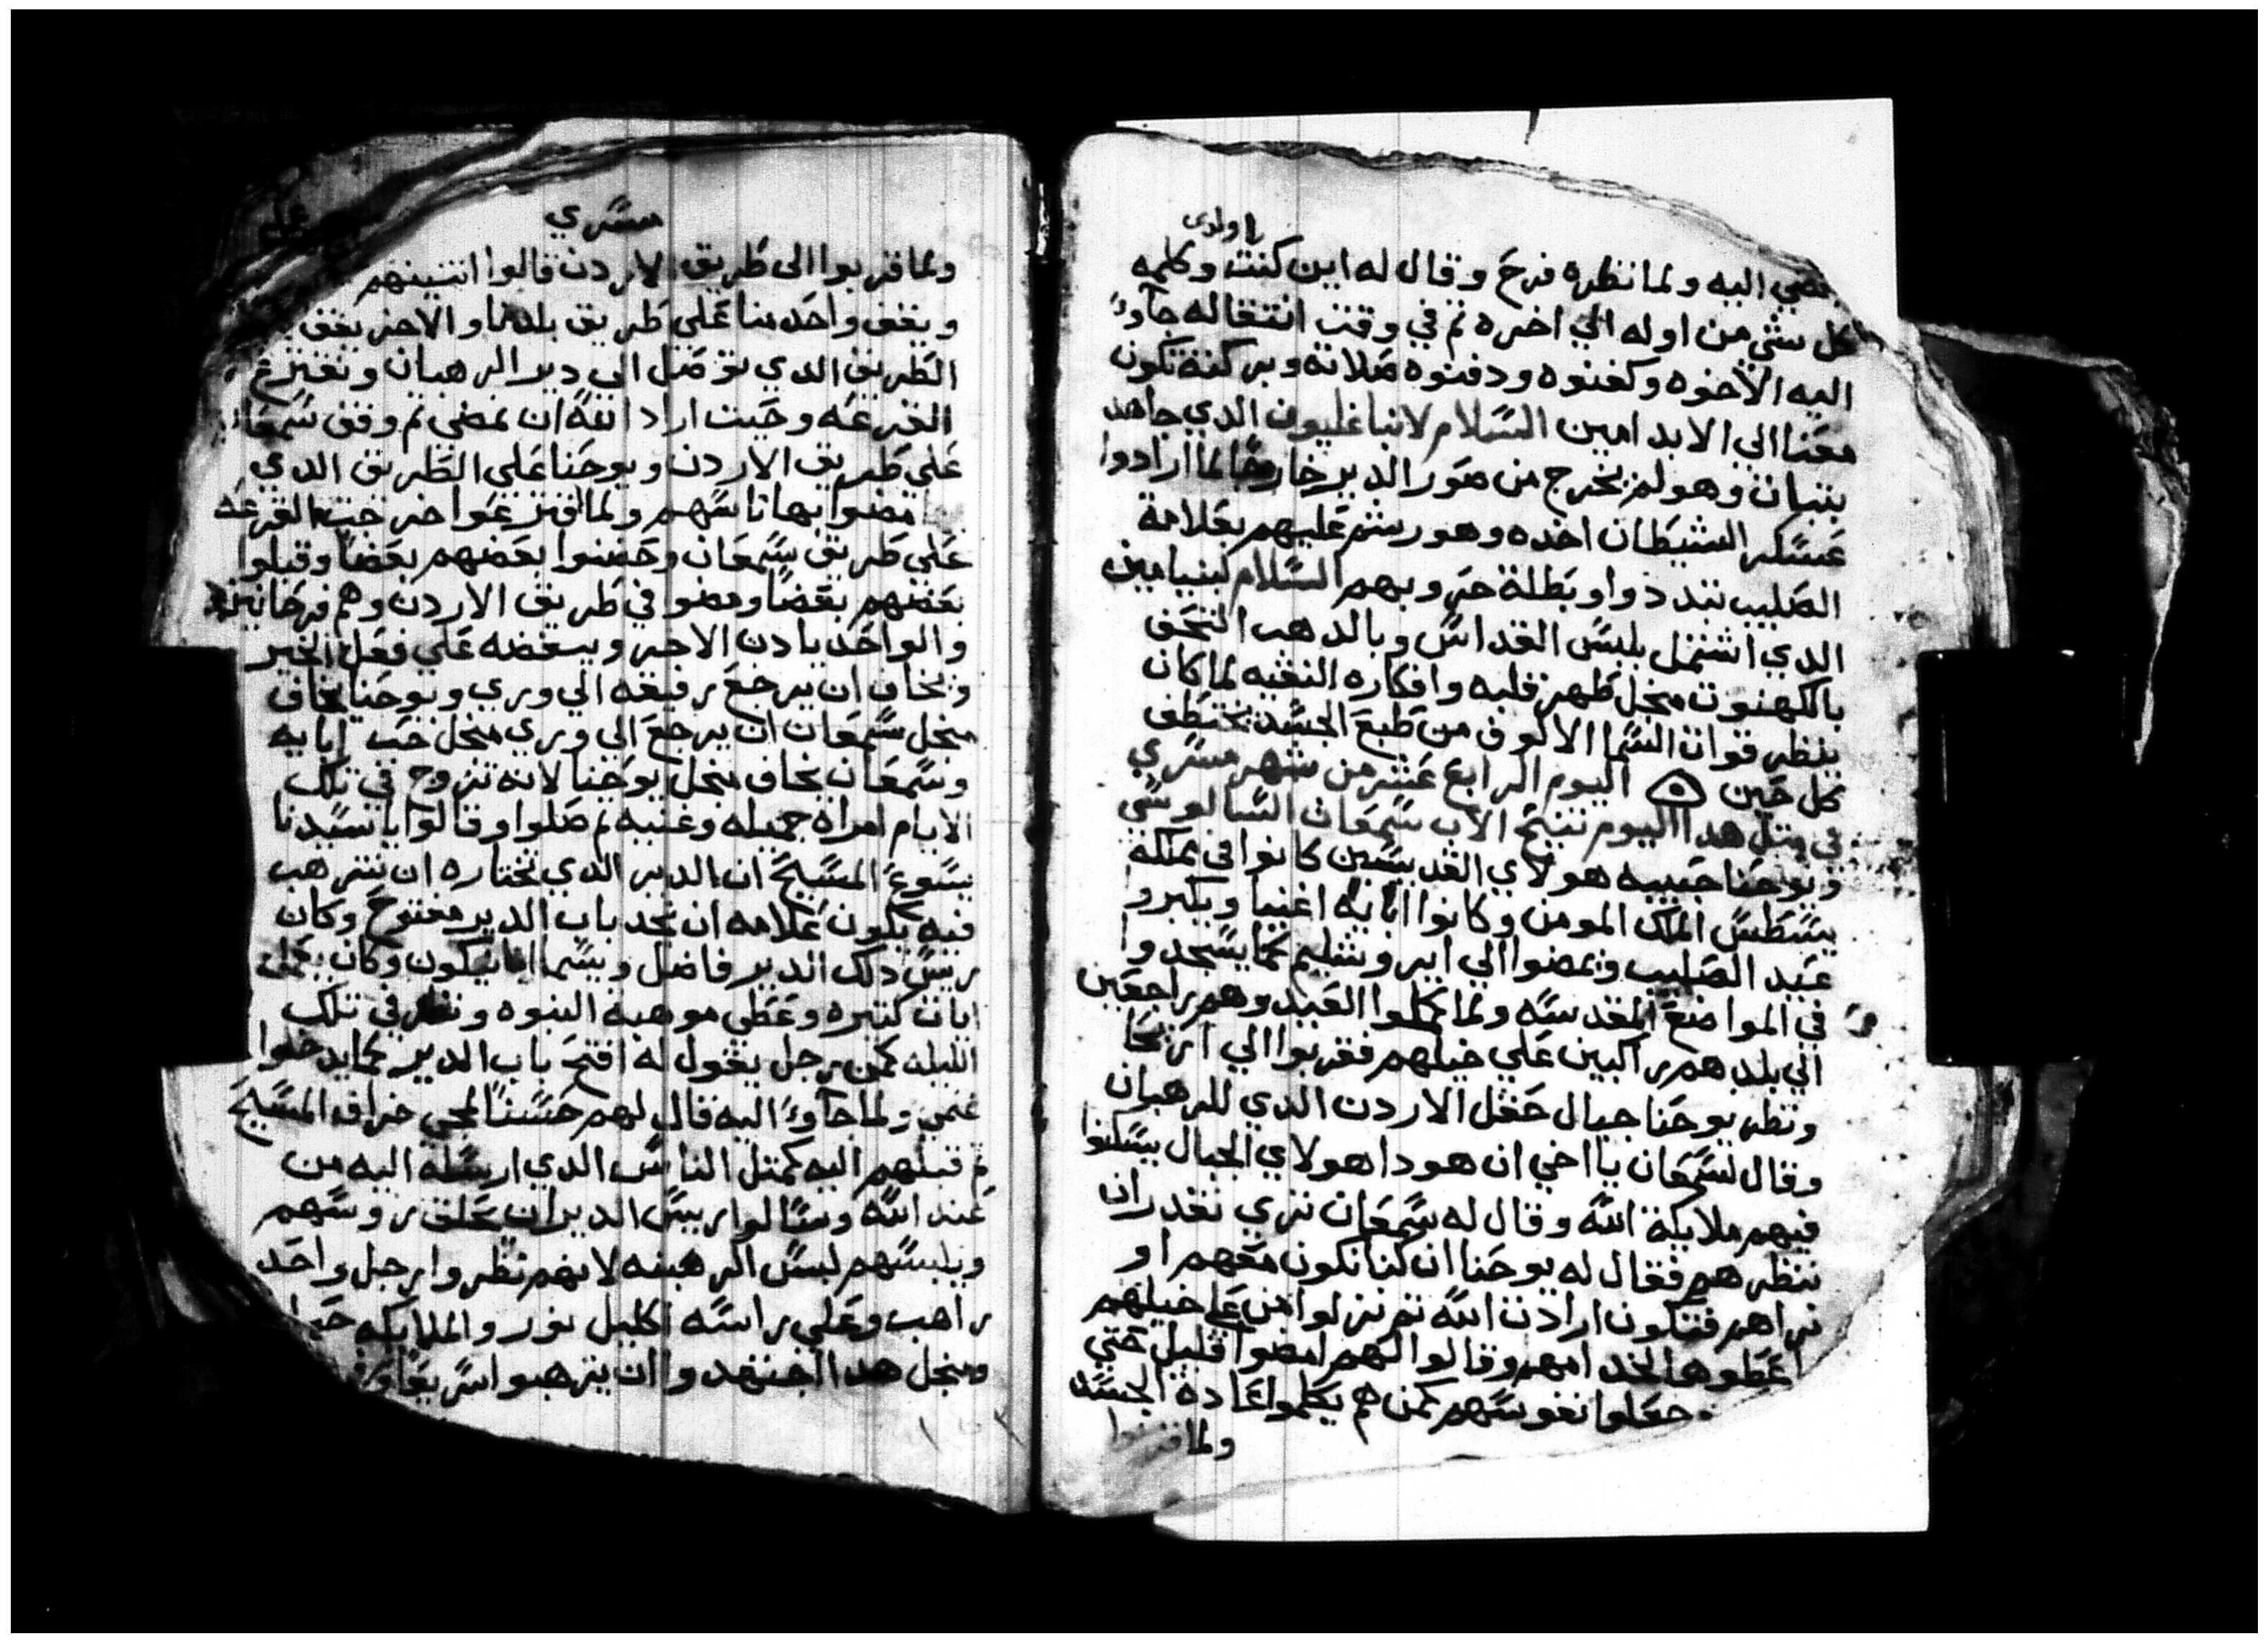 ياولدى
مضي اليه ولما نظره فرح وقال له اين كنت وكلمه
كل شي من اوله الي اخره ثم في وقت انتقاله جاوءً
اليه الاخوه وكفنوه ودفنوه صلاته وبركته تكون
معنا الي الابد امين السلام لانبا غليون الدي جاهد
بتبات وهو لم يخرج من صور الدير خارجًا لما ارادوا
عسكر الشيطان اخده وهو رشم عليهم بعلامة
الصليب تبددوا وبطلة حروبهم السلام لبنيامين
الدي اشتمل بلبس القداس وبالدهب التحف
بالكهنوت منجل طهر قلبه وافكاره النقيه لما كان
ينظر قوات السما الالوف من طبع الجسد يختطف
كل حين اليوم الرابع عشر من شهر مسري
في متل هدا اليوم تنيح الاب سمعان السالوسي
ويوحنا حبيبه هولاي القديسين كانوا في مملكة
يسطس الملك المومن وكانوا ابايه اغنيا ويكبروا
عيد الصليب ويمضوا الي ايروشليم كما يسجدوا
في المواضع المقدسه ولما كملوا العيد وهم راجعين
الي بلدهم راكبين علي خيلهم فقربوا الي اريحا
ونظر يوحنا جبال حقل الاردن الدي للرهبان
وقال لسمعان يا اخي ان هودا هولاي الجبال يسكنوا
فيهم ملايكة الله وقال له سمعان تري نقدر ان
ننظرهم فقال له يوحنا ان كنا نكون معهم او
نراهم فتكون ارادت الله ثم نزلوا من علي خيلهم
اعطوها لخدامهم وقالوا لهم امضوا قليل حتي
وجعلوا نفوسهم كمن هم يكملوا عادة الجسد
ولما قربوا
مسري
ولما قربوا الى طريق الاردن قالوا اتنينهم
ويقف واحد منا علي طريق بلدنا والاخر يقف
الطريق الدي توصل الي دير الرهبان ونقترع
القرعه وحيت اراد الله ان نمضي ثم وقف سمعان
علي طريق الاردن ويوحنا علي الطريق الدي
مضوا بها ناسهم ولما اقترعوا خرجت القرعه
علي طريق سمعان وحضنوا بعضهم بعضًا وقبلوا
بعضهم بعضًا ومضو في طريق الاردن وهم فرحانين
والواحد يادن الاخر ويسغضه علي فعل الخير
ويخاف ان يرجع رفيقه الي وري ويوحنا يخاف
منجل سمعان ان يرجع الي وري منجل حب ابايه
وسمعان يخاف منجل يوحنا لانه تزوج في تلك
الايام امراه جميله وغنيه ثم صلوا وقالوا يا سيدنا
يسوع المسيح ان الدير الدي تختاره ان نترهب
فيه يكون علامه ان نجد باب الدير مفتوح وكان
ريس دلك الدير فاضل ويسما انبا نيكون وكان يعمل
ايات كتيره وعطي موهبة النبوه ونظر في تلك
الليله كمن رجل يقول له افتح باب الدير كما يدخلوا
غنمي ولما جاوءً اليه قال لهم حسنًا لمجي خراف المسيح
ثم قبلهم اليه كمتل الناس الدي ارسله اليه من
عند الله وسالوا ريس الدير ان يحلق روسهم
ويلبسهم لبس الرهبنه لانهم نظروا رجل واحد
راهب وعلي راسه اكليل نور والملايكه
ومنجل هدا اجتهدوا ان يترهبوا سريعًا